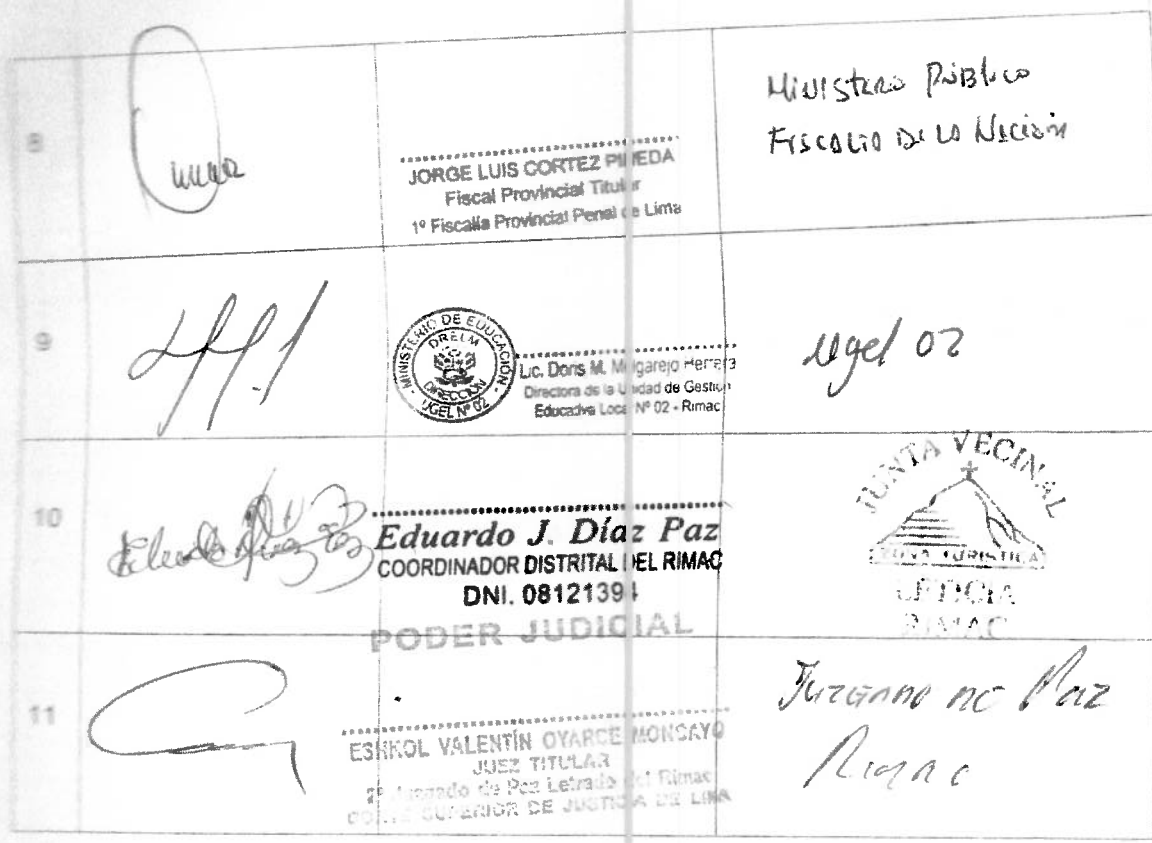 8
JORGE LUIS CORTEZ PINEDA
Fiscal Provincial Titular
1º Fiscalía Provincial Penal de Lima
Ministerio Público
Fiscalia De La Nación
9
MINISTERIO DE EDUCACIÓN
DRELM
DIRECCIÓN
UGEL Nº 02
Lic. Doris M. Melgarejo Herrera
Directora de la Unidad de Gestión
Educativa Local Nº 02 - Rimac
Ugel 02
10
Eduardo Díaz Paz
Eduardo J. Díaz Paz
COORDINADOR DISTRITAL DEL RIMAC
DNI. 08121394
JUNTA VECINAL
ZONA TURISTICA
LETICIA
RIMAC
11
PODER JUDICIAL
ESHKOL VALENTÍN OYARCE MONSAYO
JUEZ TITULAR
2º Juzgado de Paz Letrado del Rimac
CORTE SUPERIOR DE JUSTICIA DE LIMA
Juzgado de Paz
Rimac